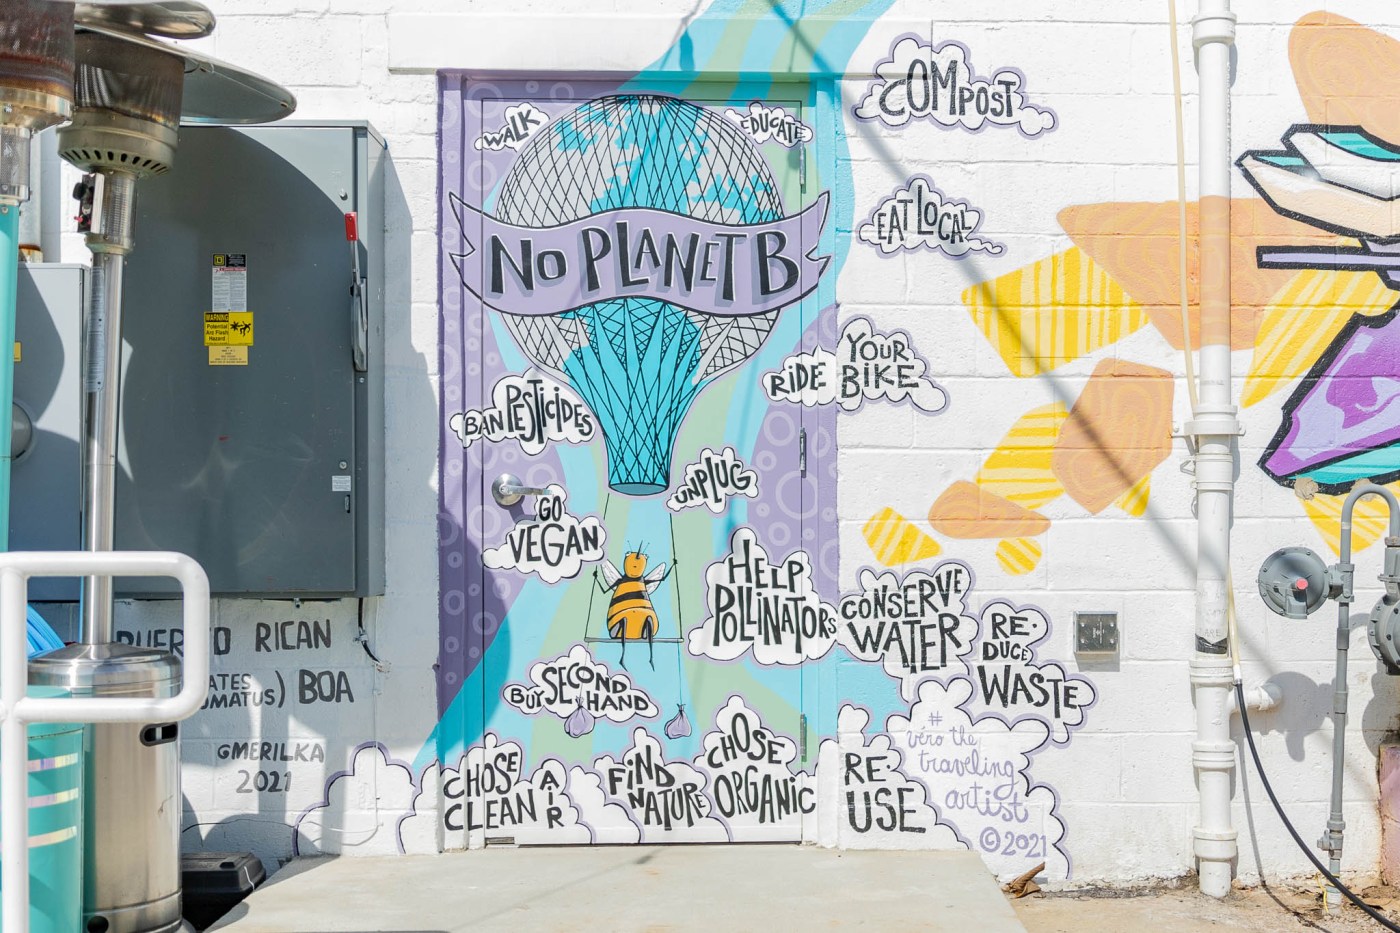 COMPOST
WALK
EDUCATE
EAT LOCAL
NO PLANET B
WARNING
Potential
Arc Flash
Hazard
RIDE YOUR
BIKE
BAN PESTICIDES
UNPLUG
GO
VEGAN
HELP
POLLINATORS
CONSERVE
WATER
RE-
DUCE
WASTE
PUERTO RICAN
BOA
GMERILKA
2021
BUY SECOND
HAND
CHOSE
CLEAN
AIR
FIND
NATURE
CHOSE
ORGANIC
RE-
USE
#
vero the
traveling
artist
©2021